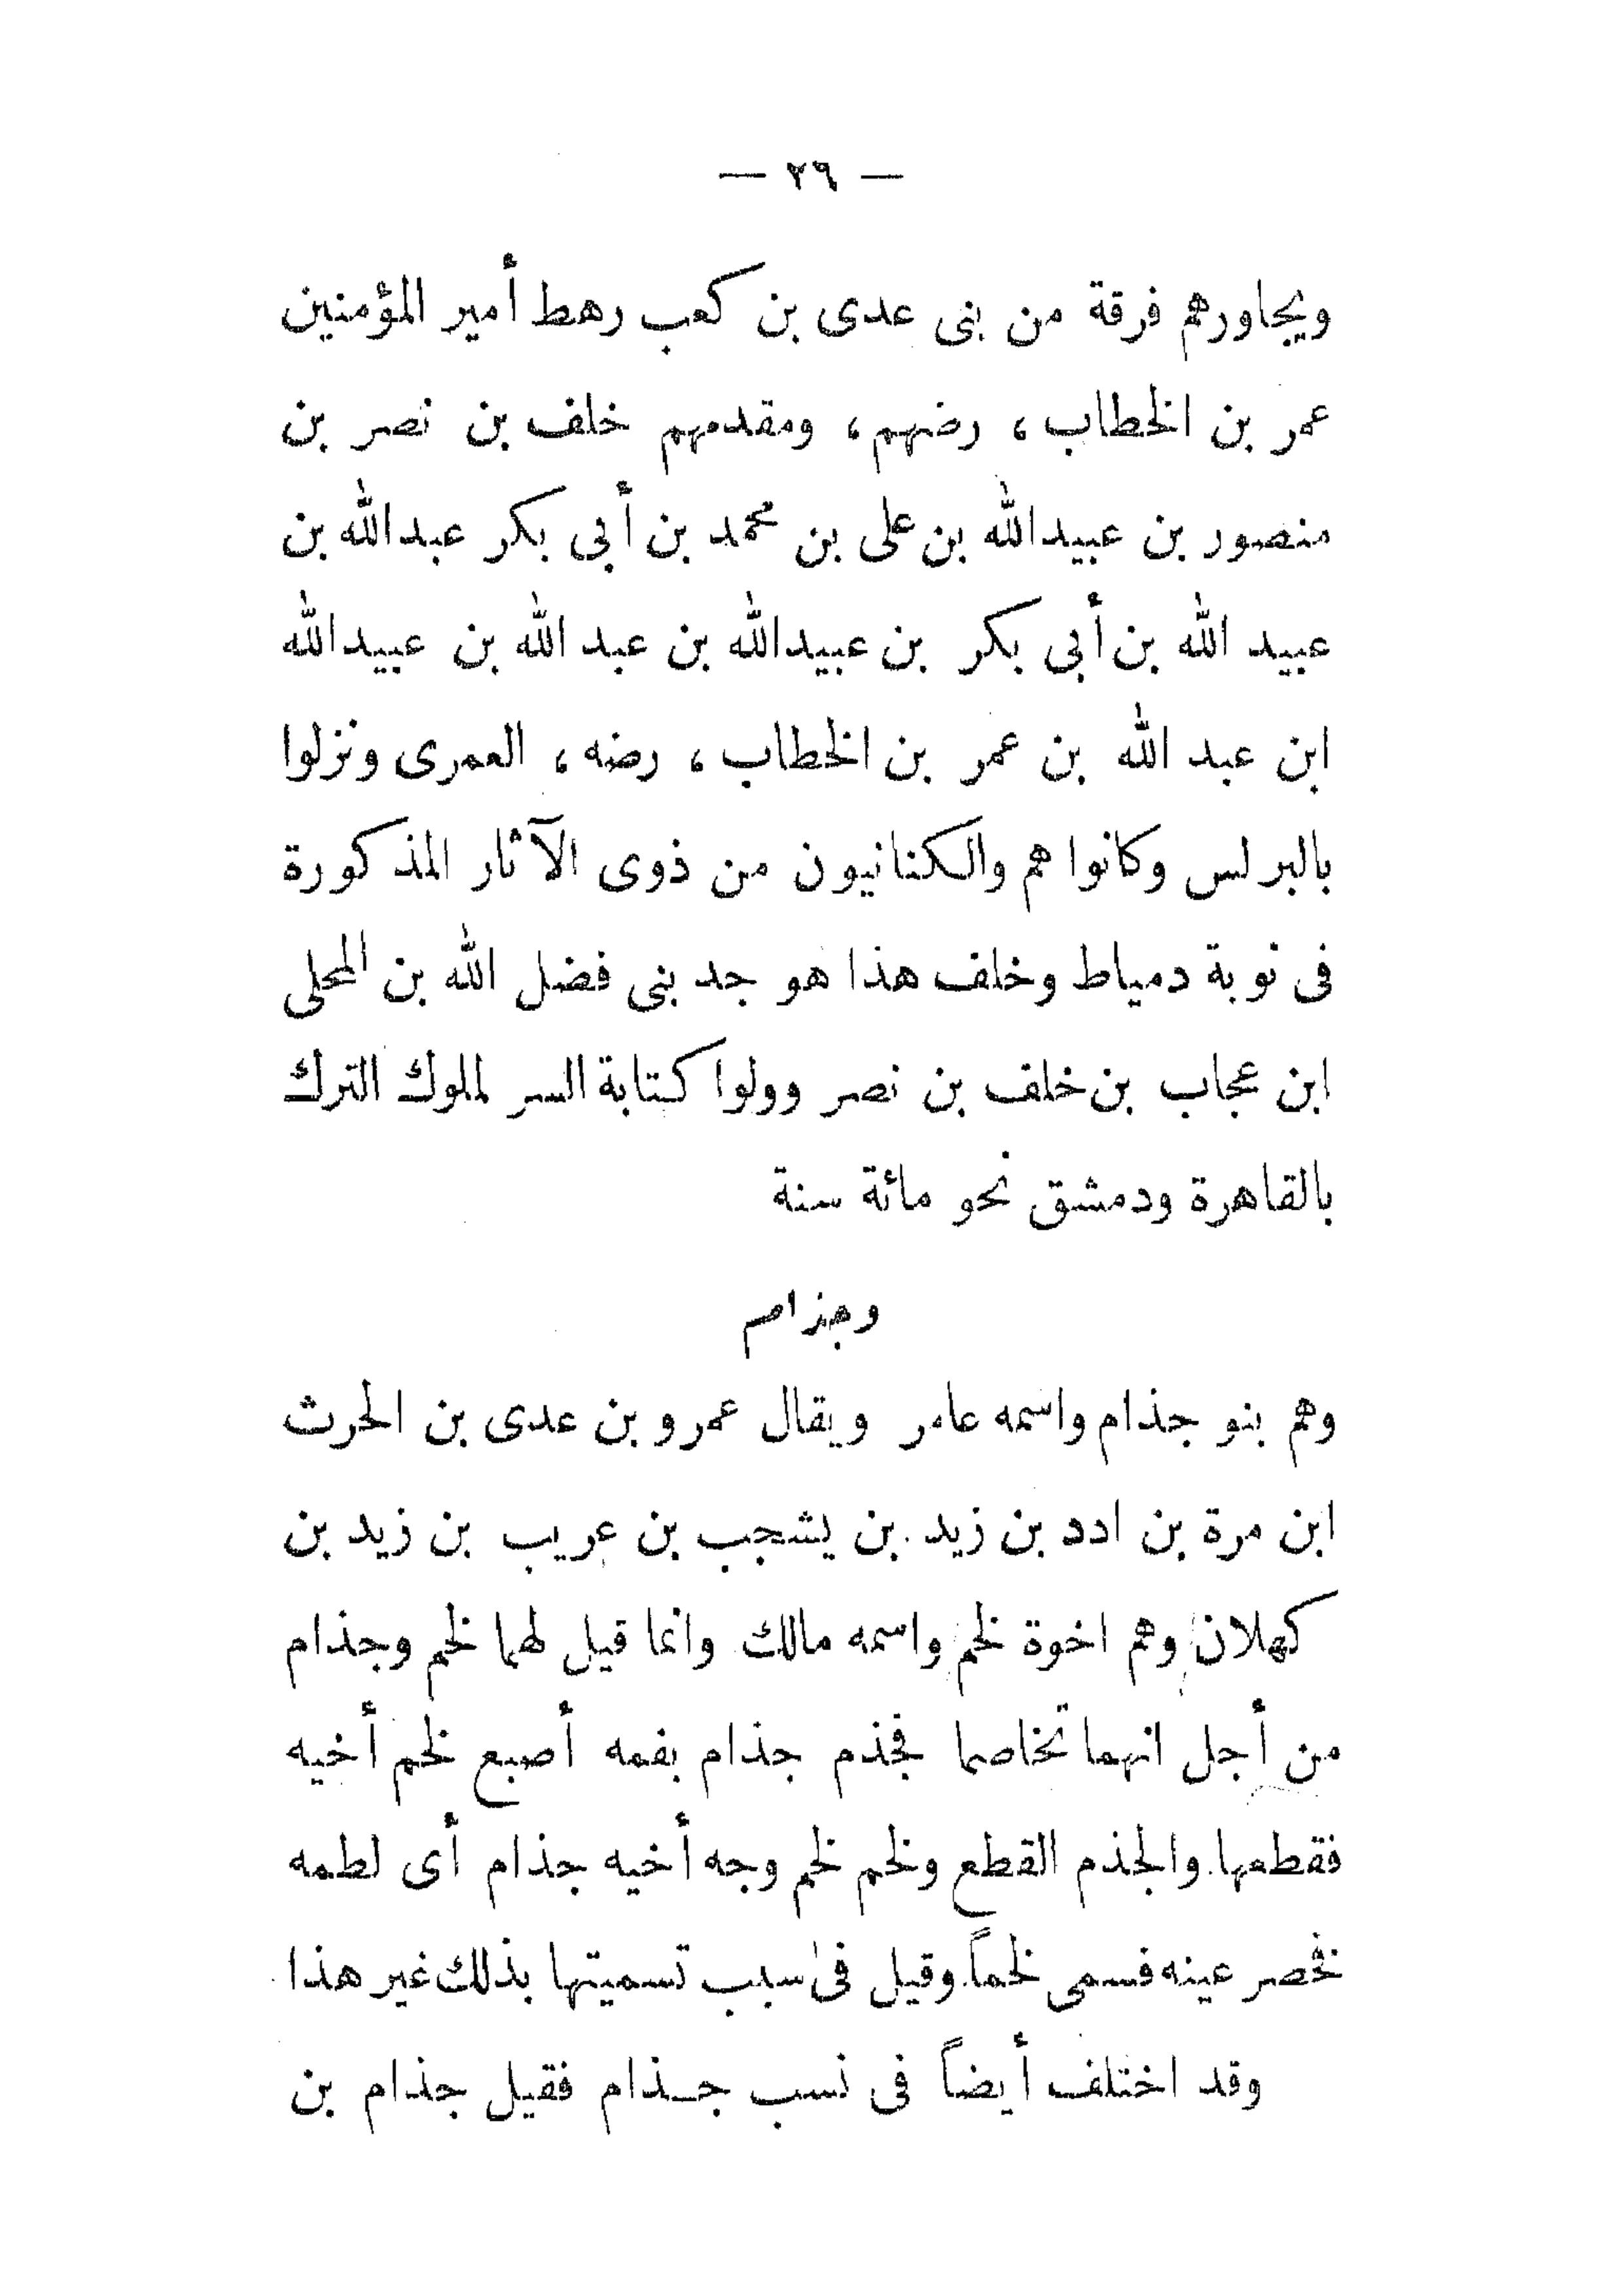 — ٢٩ —
ويجاورهم فرقة من بنى عدى بن كعب رهط أمير المؤمنين
عمر بن الخطاب ، رضهم ، ومقدمهم خلف بن نصر بن
منصور بن عبيدالله بن على بن محمد بن أبى بكر عبدالله بن
عبيد الله بن أبى بكر بن عبيدالله بن عبد الله بن عبيدالله
ابن عبد الله بن عمر بن الخطاب ، رضه ، العمرى ونزلوا
بالبرلس وكانوا هم والكنانيون من ذوى الآثار المذكورة
فى نوبة دمياط وخلف هذا هو جد بنى فضل الله بن المحلى
ابن عجاب بن خلف بن نصر وولوا كتابة السر لملوك الترك
بالقاهرة ودمشق نحو مائة سنة
وجذام
وهم بنو جذام واسمه عامر ويقال عمرو بن عدى بن الحرث
ابن مرة بن ادد بن زيد بن يشجب بن عريب بن زيد بن
كهلان وهم اخوة لخم واسمه مالك وانما قيل لهما لخم وجذام
من أجل انهما تخاصما فجذم جذام بفمه أصبع لخم أخيه
فقطعها والجذم القطع ولخم لخم وجه أخيه جذام أى لطمه
فخصر عينه فسمى لخماً وقيل فى سبب تسميتها بذلك غير هذا
وقد اختلف أيضاً فى نسب جـذام فقيل جذام بن